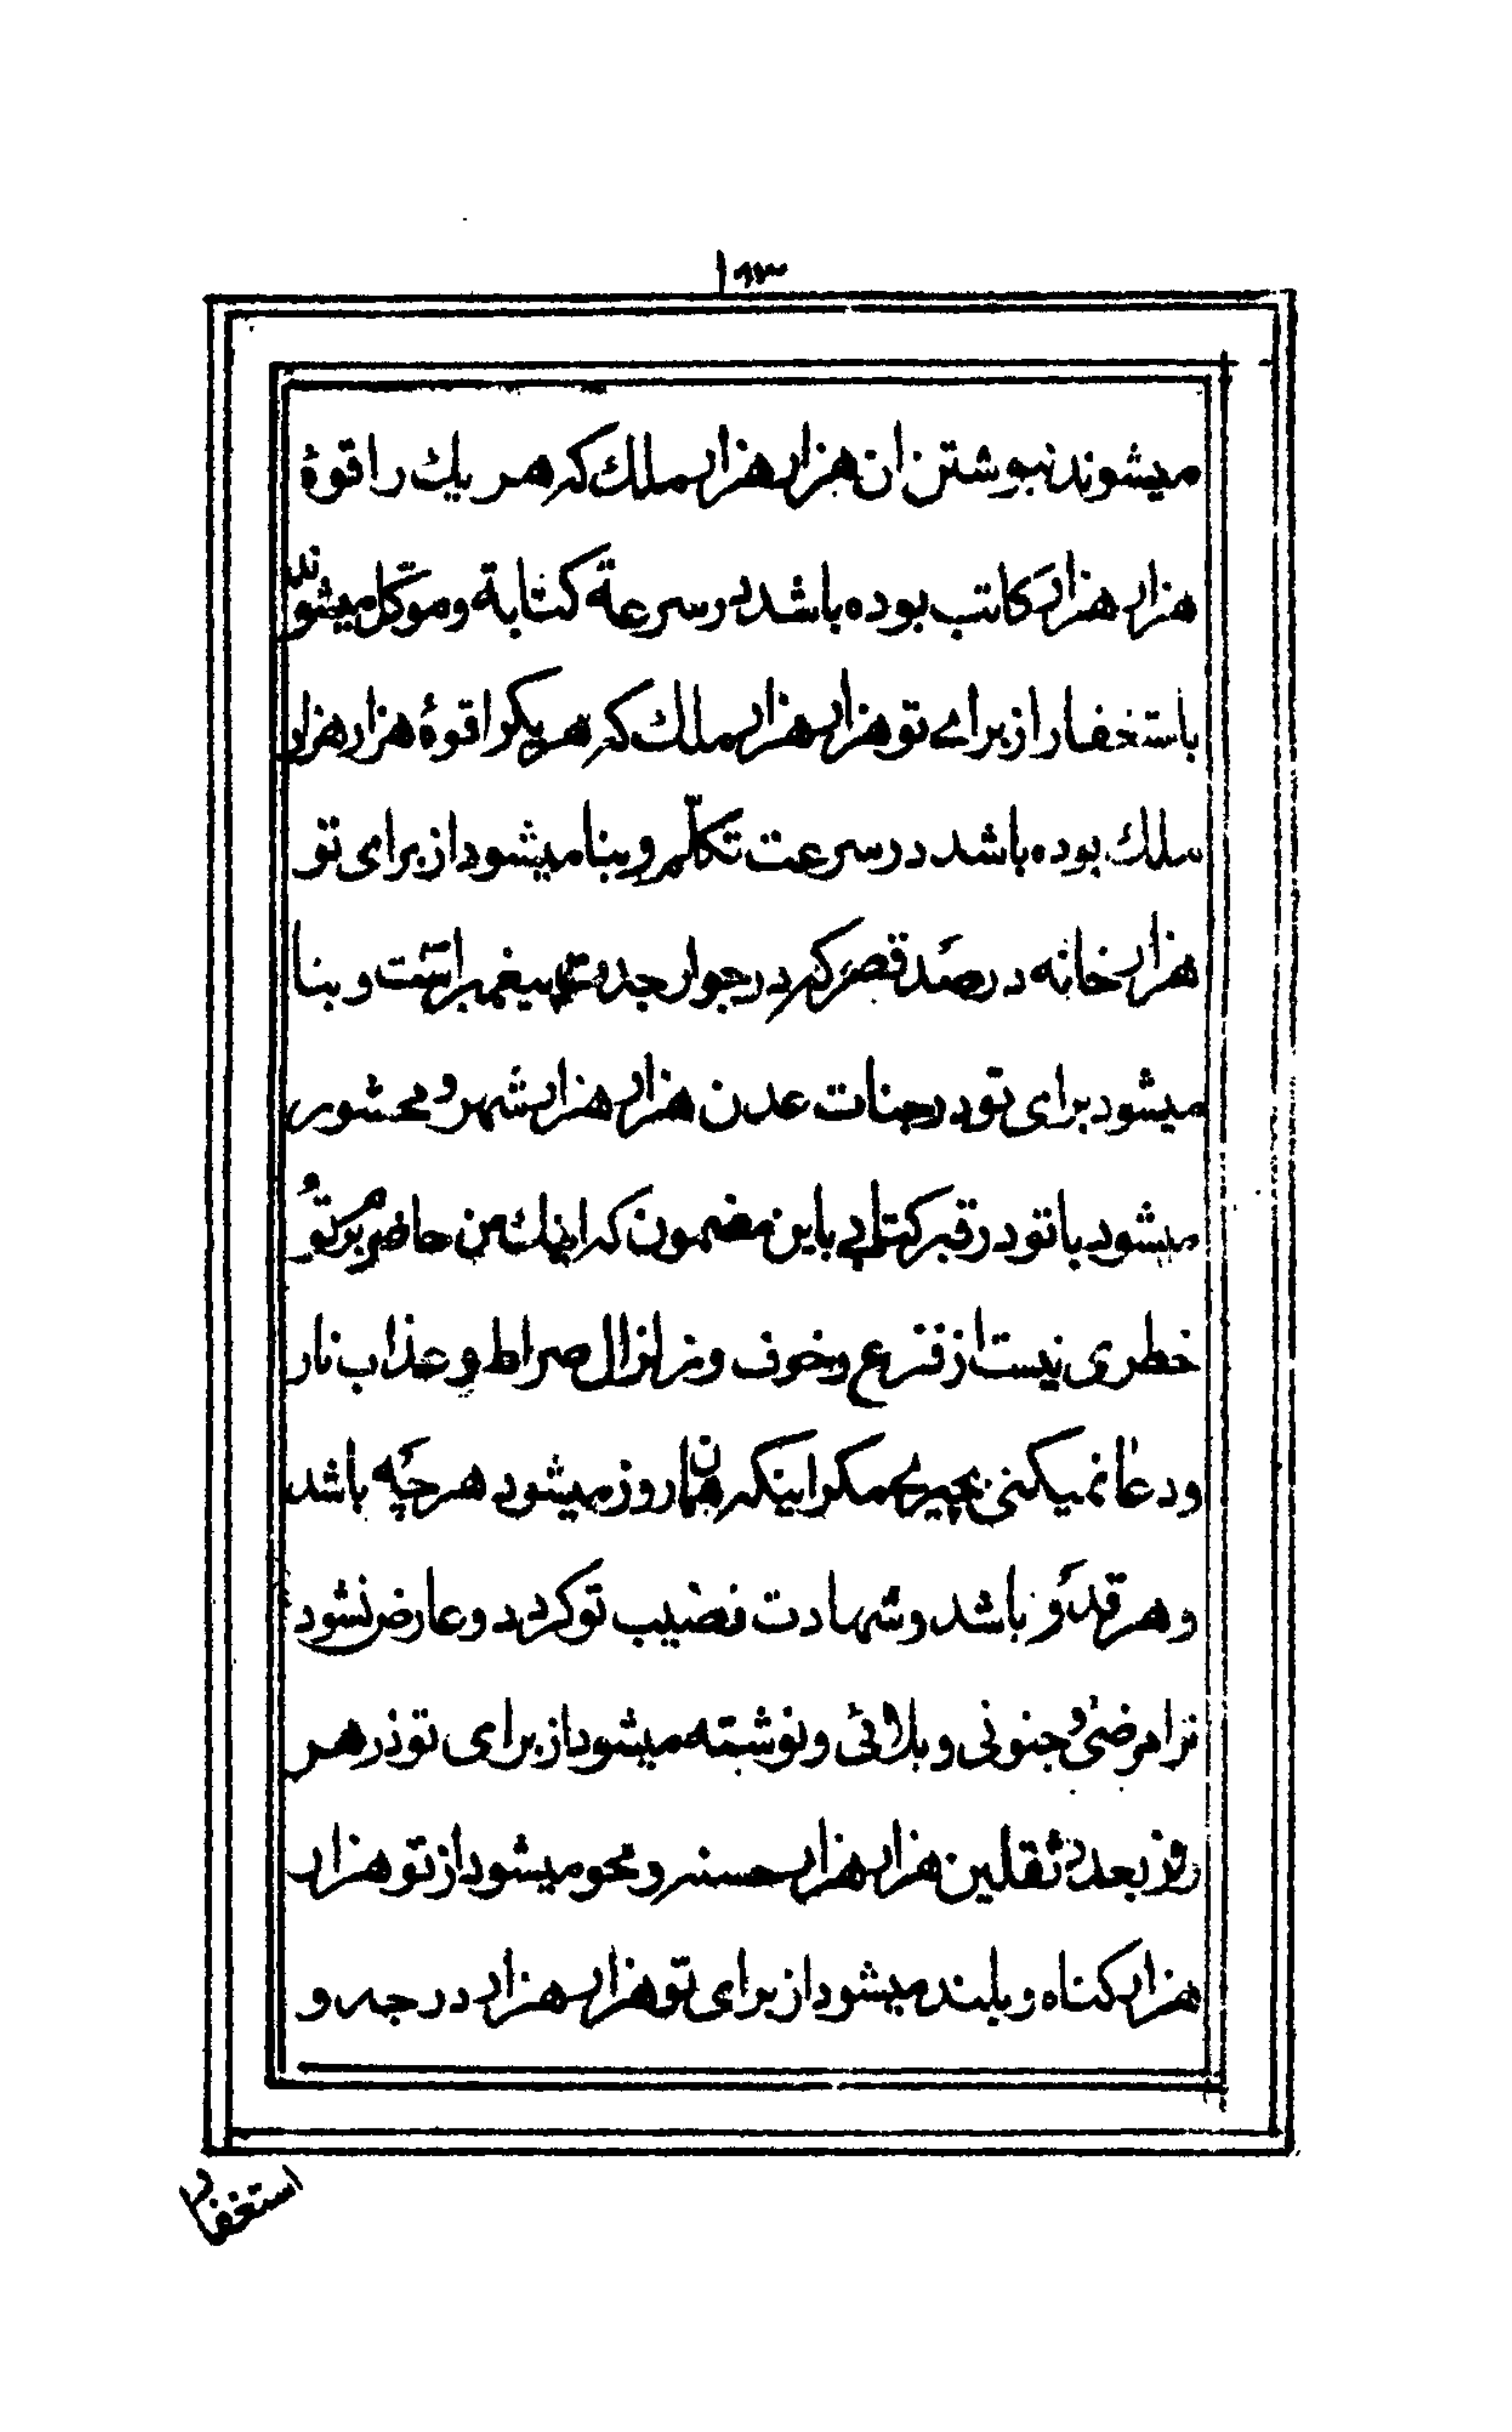 ۱۹۳
میشوند نبوشتن ان هزار هزار ملك که هر یك را قوهٔ
هزار هزار کاتب بوده باشد در سرعة کتابة و موکّل میشوند
باستغفار از برای تو هزار هزار ملك که هر یکرا قوهٔ هزار هزار
ملك بوده باشد در سرعت تکلّم و بنا میشود از برای تو
هزار خانه در صد قصر که در جوار جدت پیغمبر است و بنا
میشود برای تو در جنات عدن هزار هزار شهر و محشور
میشود با تو در قبر کتابی باین مضمون که اینك من حاضرم بر تو
خطری نیست از فزع و خوف و زلزال صراط و عذاب نار
و دعا نمیکنی بچیزی مکر اینکه همان روز میشود هر چه باشد
و هر قدر باشد و شهادت نصیب تو کردد و عارض نشود
ترا مرضی و جنونی و بلائی و نوشته میشود از برای تو در هر
روز بعدد ثقلین هزار هزار حسنه و محو میشود از تو هزار
هزار کناه و بلند میشود از برای تو هزار هزار درجه و
استغفار